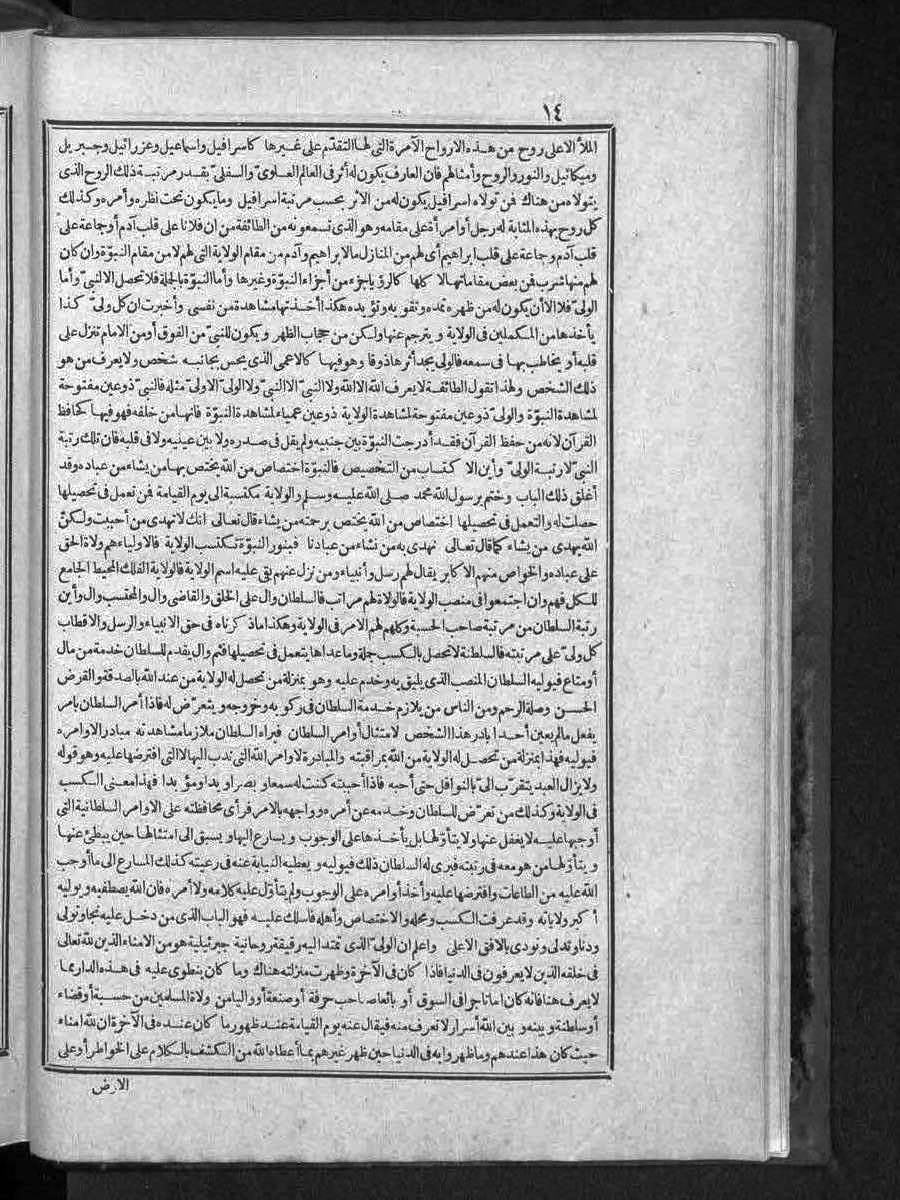 ١٤
الملأ الاعلى روح من هذه الارواح الآمرة التى لها التقدّم على غيرها كاسرافيل واسماعيل وعزرائيل وجبريل
وميكائيل والنور والروح وأمثالهم فان العارف يكون له أثر فى العالم العلوى والسفلى بقدر مرتبة ذلك الروح الذى
يتولاه من هناك فن تولاه اسرافيل يكون له من الاثر بحسب مرتبة اسرافيل وما يكون تحت نظره وأمره وكذلك
كل روح بهذه المثابة له رجل أو امرأة على مقامه وهو الذى تسمعونه من الطائفة من ان فلانا على قلب آدم أو جماعة على
قلب آدم وجماعة على قلب ابراهيم أى لهم من المنازل مالابراهيم وآدم من مقام الولاية التى لهم لا من مقام النبوّة وان كان
لهم منها شرب فمن بعض مقاماتها لا كلها كالرؤيا جزء من أجزاء النبوّة وغيرها وأما النبوّة بالجملة فلا تحصل الالنبىّ وأما
الولىّ فلا الا أن يكون له من ظهره تمده وتقويه وتؤيده هكذا أخذتها مشاهدة من نفسى وأخبرت ان كل ولىّ كذا
يأخذها من المكملين فى الولاية ويترجم عنها ولكن من حجاب الظهر ويكون للنبىّ من الفوق أو من الامام تنزل على
قلبه أو يخاطب بها فى سمعه فالولى يجد أثرها ذوقا وهو فيها كالاعمى الذى يحس بجانبه شخص ولا يعرف من هو
ذلك الشخص ولهذا تقول الطائفة لا يعرف الله الا الله ولا النبىّ الا النبىّ ولا الولىّ الا ولىّ مثله فالنبىّ ذو عين مفتوحة
لمشاهدة النبوّة والولىّ ذو عين مفتوحة لمشاهدة الولاية ذو عين عمياء لمشاهدة النبوّة فانها من خلفه فهو فيها كحافظ
القرآن لانه من حفظ القرآن فقد أدرجت النبوّة بين جنبيه ولم يقل فى صدره ولا بين عينيه ولا فى قلبه فان تلك رتبة
النبىّ لا رتبة الولىّ وأين الاكتساب من التخصيص فالنبوّة اختصاص من الله يختص بها من يشاء من عباده وقد
أغلق ذلك الباب وختم برسول الله محمد صلى الله عليه وسلم والولاية مكتسبة الى يوم القيامة فن تعمل فى تحصيلها
حصلت له والتعمل فى تحصيلها اختصاص من الله يختص برحمته من يشاء قال تعالى انك لاتهدى من أحببت ولكنّ
الله يهدى من يشاء كما قال تعالى نهدى به من نشاء من عبادنا فبنور النبوّة تكتسب الولاية فالاولياء هم ولاة الحق
على عباده والخواص منهم الاكابر يقال لهم رسل وأنبياء ومن نزل عنهم بقى عليه اسم الولاية فالولاية الفلك المحيط الجامع
للكل فهم وان اجتمعوا فى منصب الولاية فالولاة لهم مراتب فالسلطان وال على الخلق والقاضى وال والمحتسب وال وأين
رتبة السلطان من مرتبة صاحب الحسبة وكلهم لهم الامر فى الولاية وهكذا ماذكرناه فى حق الانبياء والرسل والاقطاب
كل ولىّ على مرتبته فالسلطنة لاتحصل بالكسب جملة وماعداها يتعمل فى تحصيلها فثم وال يقدم للسلطان خدمة من مال
أو متاع فيوليه السلطان المنصب الذى يليق به وخدم عليه وهو بمنزلة من تحصل له الولاية من عند الله بالصدقة والقرض
الحسن وصلة الرحم ومن الناس من يلازم خدمة السلطان فى ركوبه وخروجه ويتعرّض له فاذا أمر السلطان بامر
يفعل مالم يعين أحدا بادر هذا الشخص لامتثال أوامر السلطان فيراه السلطان ملازما مشاهدته مبادرا لاوامره
فيوليه فهذا بمنزلة من تحصل له الولاية من الله بمراقبته والمبادرة لاوامر الله التى ندب اليها لا التى افترضها عليه وهو قوله
ولا يزال العبد يتقرّب الىّ بالنوافل حتى أحبه فاذا أحببته كنت له سمعا وبصرا ويدا ومؤيدا فهذا معنى الكسب
فى الولاية وكذلك من تعرّض للسلطان وخدمه عن أمره وواجهه بالامر فرأى محافظته على الاوامر السلطانية التى
أوجبها عليه لايغفل عنها ولا يتأوّلها بل يأخذها على الوجوب ويسارع اليها ويسبق الى امتثالها حين يبطئ عنها
ويتأوّلها من هو معه فى رتبته فيرى له السلطان ذلك فيوليه ويعطيه النيابة عنه فى رعيته كذلك المسارع الى ما أوجب
الله عليه من الطاعات وافترضها عليه وأخذ أوامره على الوجوب ولم يتأوّل عليه كلامه ولا أمره فان الله يصطفيه ويوليه
أكبر ولاياته وقد عرفت الكسب ومحله والاختصاص وأهله فاسلك عليه فهو الباب الذى من دخل عليه نجا وتولى
ودنا وتدلى ونودى بالافق الاعلى واعلم ان الولىّ الذى تمتد اليه رقيقة روحانية جبرئيلية هو من الامناء الذين لله تعالى
فى خلقه الذين لايعرفون فى الدنيا فاذا كان فى الآخرة وظهرت منزلته هناك وما كان ينطوى عليه فى هذه الدار مما
لايعرف هنا فانه كان اما تاجرا فى السوق أو بائعا صاحب حرفة أو صنعة أو واليا من ولاة المسلمين من حسبة أو قضاء
أو سلطنة وبينه وبين الله أسرار لاتعرف منه فيقال عنه يوم القيامة عند ظهور ما كان عنده فى الآخرة ان لله امناء
حيث كان هذا عندهم وما ظهروا به فى الدنيا حين ظهر غيرهم بما أعطاه الله من الكشف بالكلام على الخواطر أو على
الارض